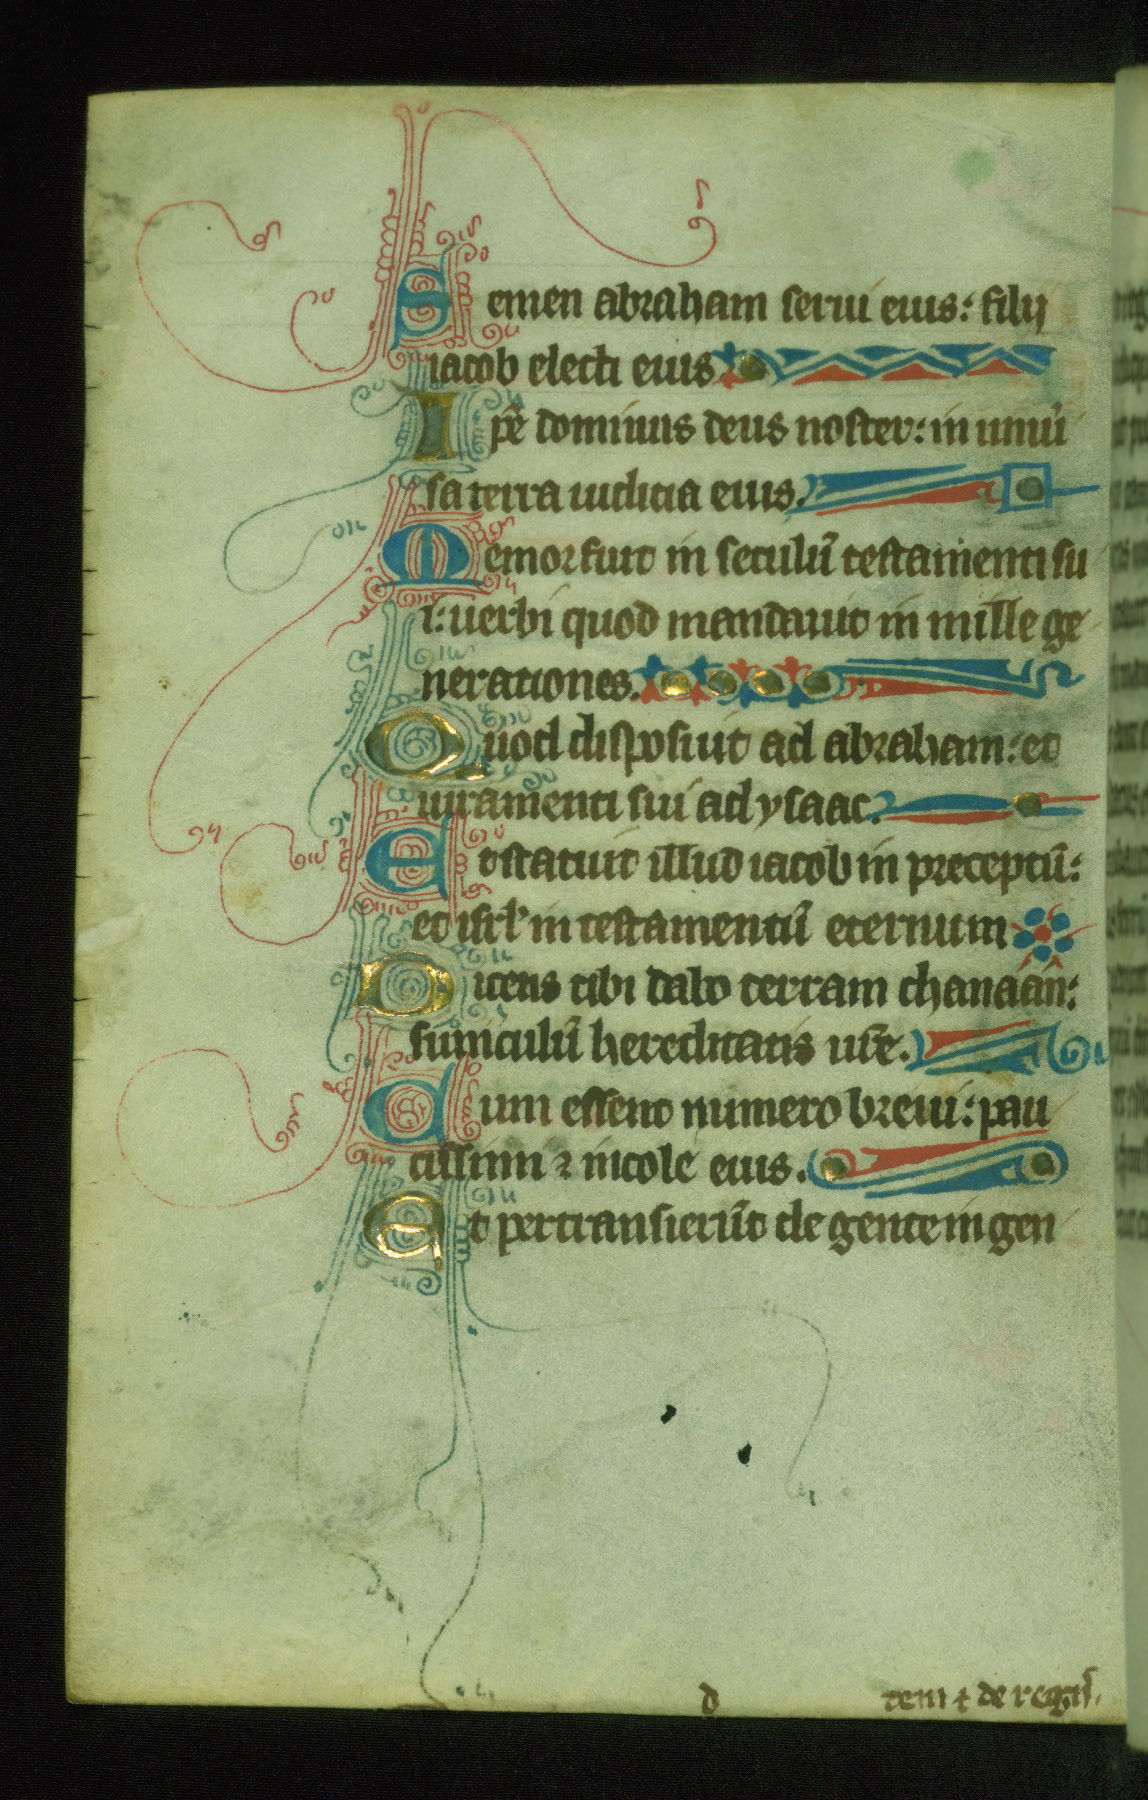 Semen abraham serui eius: filij
iacob electi eius
Ip̄e dominus deus noster: in uniū
sa terra iudicia eius.
Memor fuit in seculū testamenti su
i: uerbi quod mandauit in mille ge
nerationes.
Quod disposuit ad abraham: et
iuramenti sui ad ysaac.
Et statuit illud iacob in preceptū:
et isrl̄ in testamentū eternum
Dicens tibi dabo terram chanaan:
funiculū hereditatis ur̄e.
Cum essent numero breui: pau
cissimi ⁊ incole eius.
Et pertransierūt de gente in gen
d
tem ⁊ de regn̄.